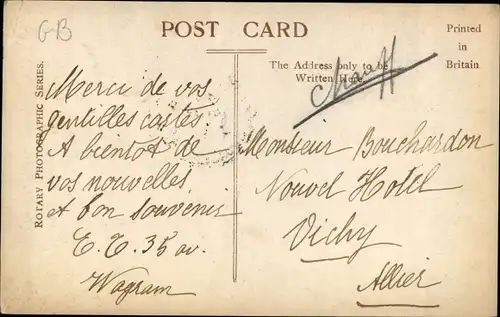 GB
POST CARD
Printed
in
Britain
The Address only to be
Written Here
ROTARY PHOTOGRAPHIC SERIES.
Merci de vos
gentilles cartes
A bientot de
vos nouvelles,
et bon souvenir
E. T. 35 av.
Wagram
Monsieur Bouchardon
Nouvel Hotel
Vichy
Allier